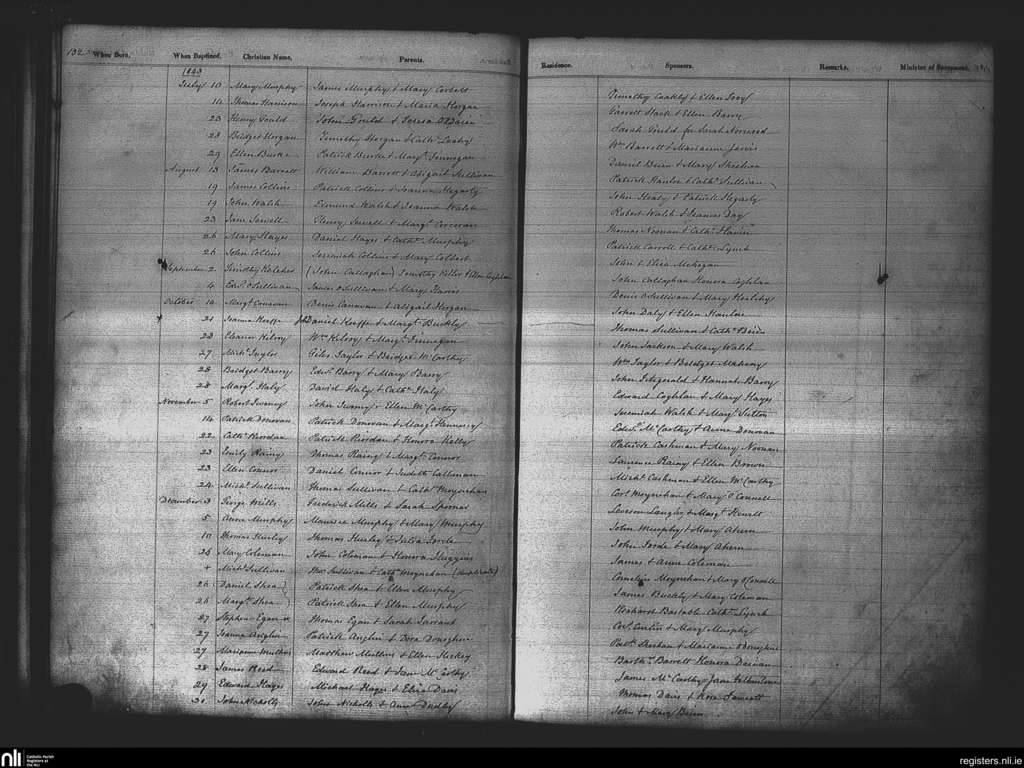 132 When Born. When Baptized. Christian Name. Parents. Residence. Sponsors. Remarks. Minister of Sacrament.
1843
July 10 Mary Murphy James Murphy & Mary Corbett Timothy Coakley & Ellen
14 Thomas Harrison Joseph Harrison & Maria Horgan Garrett Stack & Ellen Barry
23 Henry Gould John Gould & Teresa Sarah Gould for Sarah Norwood
28 Bridget Horgan Timothy Horgan & Cath. Leahy Wm Barrett & Marianne Jarvis
29 Ellen Burke Patrick Burke & Margt. Finnegan Daniel & Mary Sheehan
August 13 James Barrett William Barrett & Abigail Sullivan Patrick Hanlon & Cathe. Sullivan
19 James Collins Patrick Collins & Joanna Hegarty John Healy & Patrick Hegarty
19 John Walsh Edmund Walsh & Joanna Walsh Robert Walsh & Frances Day
23 Jane Sewell Henry Sewell & Margt. Corcoran Thomas Noonan & Cathe.
26 Mary Hayes Daniel Hayes & Cathe. Murphy Patrick Carroll & Cathe. Lynch
26 John Collins Jeremiah Collins & Mary Colbert John & Eliza
September 2 Timothy Keleher (John Callaghan) Timothy Keller & Ellen Coghlan John Callaghan Honora Coghlan
4 Edwd. O'Sullivan James O'Sullivan & Mary Denis O'Sullivan & Mary
October 14 Margt. Canavan Denis Canavan & Abigail Horgan John Daly & Ellen Hanlon
21 Joanna Keeffe Daniel Keeffe & Margt. Buckly Thomas Sullivan & Cathe.
23 Eleanor Kilroy Wm Kilroy & Margt. Finnegan John Jackson & Mary Walsh
27 Michl. Taylor Giles Taylor & Bridget McCarthy Wm Taylor & Bridget Mahony
28 Bridget Barry Edwd. Barry & Mary Barry John Fitzgerald & Hannah Barry
28 Margt. Haly David Haly & Cathe. Haly Edward Coghlan & Mary Hayes
November 5 Robert Twomey John Twomey & Ellen McCarthy Jeremiah Walsh & Margt. Sutton
14 Patrick Donovan Patrick Donovan & Margt. Hennessy Edwd. McCarthy & Anne Donovan
22 Cathe. Riordan Patrick Riordan & Honora Kelly Patrick Cashman & Mary Noonan
23 Emily Rainy Thomas Rainy & Margt. Connor Laurence Rainy & Ellen Brown
23 Ellen Connor Daniel Connor & Judith Callinan Michl. Cashman & Ellen McCarthy
24 Michl. Sullivan Thomas Sullivan & Cathe. Moynehan Corl. Moynehan & Mary O'Connell
December 3 George Mills Frederick Mills & Sarah Spooner Langley & Margt. Hewitt
5 Anne Murphy Maurice Murphy & Mary Murphy John Murphy & Mary Ahern
10 Thomas Hurley Thomas Hurley & Julia Forde John Forde & Mary Ahern
25 Mary Coleman John Coleman & Honora Huggins James & Anne Coleman
+ Michl. Sullivan Thos Sullivan & Cathe. Moynehan (duplicate) Cornelius Moynehan & Mary O'Connell
26 Daniel Shea Patrick Shea & Ellen Murphy James Buckley & Mary Coleman
26 Margt. Shea Patrick Shea & Ellen Murphy Richard Bastable Cathe. Lynch
27 Stephen Egan Thomas Egan & Sarah Sarrant Corl. Curtin & Mary Murphy
27 Joanna Anglin Patrick Anglin & Dora Donoghue Patk. Sheehan & Marianne Donoghue
27 Marianne Mullins Matthew Mullins & Ellen Hickey Barthw. Barrett Honora
28 James Reed Edward Reed & Jane McCarthy James McCarthy Jane
29 Edward Hayes Michael Hayes & Eliza Davis Thomas Davis & Rose
31 John Nicholls John Nicholls & Anne Dudley John & Mary
nli Catholic Parish Registers at the NLI registers.nli.ie